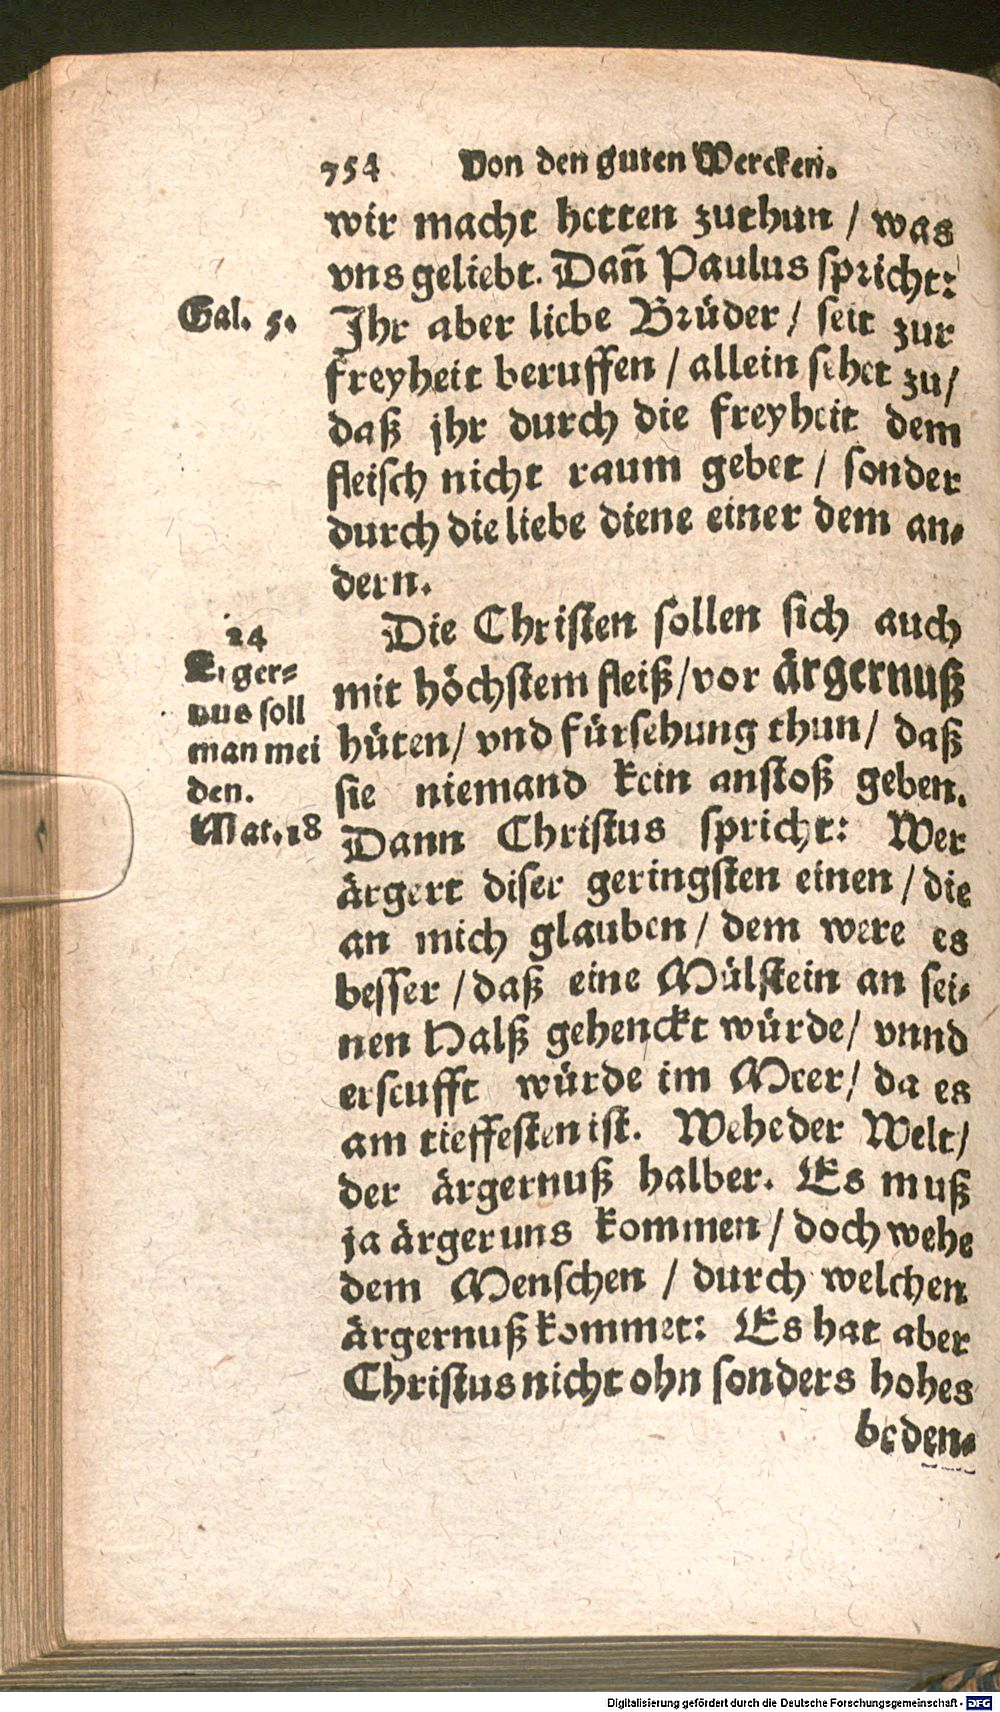 754 Von den guten Wercken.
wir macht hetten zuthun / was
vns geliebt. Dañ Paulus spricht:
Gal. 5.
Ihr aber liebe Brüder / seit zur
freyheit beruffen / allein sehet zu/
daß jhr durch die freyheit dem
fleisch nicht raum gebet / sonder
durch die liebe diene einer dem an-
dern.
24
Erger-
nus soll
man mei
den.
Mat. 18
Die Christen sollen sich auch
mit höchstem fleiß/vor ärgernuß
hüten/ vnd fürsehung thun/ daß
sie niemand kein anstoß geben.
Dann Christus spricht: Wer
ärgert diser geringsten einen / die
an mich glauben / dem were es
besser / daß eine Mülstein an sei-
nen Halß gehenckt würde/ vnnd
erseufft würde im Meer/ da es
am tieffesten ist. Wehe der Welt/
der ärgernuß halber. Es muß
ja ärgeruns kommen / doch wehe
dem Menschen / durch welchen
ärgernuß kommet: Es hat aber
Christus nicht ohn sonders hohes
beden-
Digitalisierung gefördert durch die Deutsche Forschungsgemeinschaft - DFG